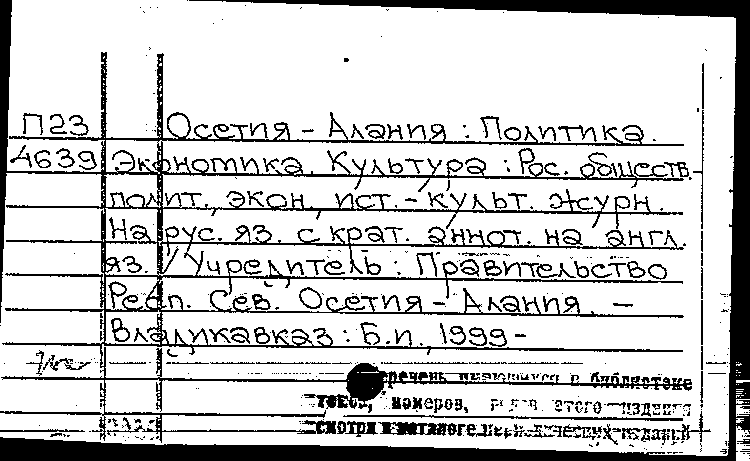 П23 Осетия - Алания : Политика.
4639 Экономика. Культура : Рос. обществ.-
полит., экон., ист.- культ. журн.
На рус. яз. с крат. аннот. на англ.
яз. / Учредитель : Правительство
Респ. Сев. Осетия - Алания. —
Владикавказ : Б.и., 1999-
перечень имеющихся в библиотеке
томов, номеров, годов этого издания
смотри в каталоге периодических изданий